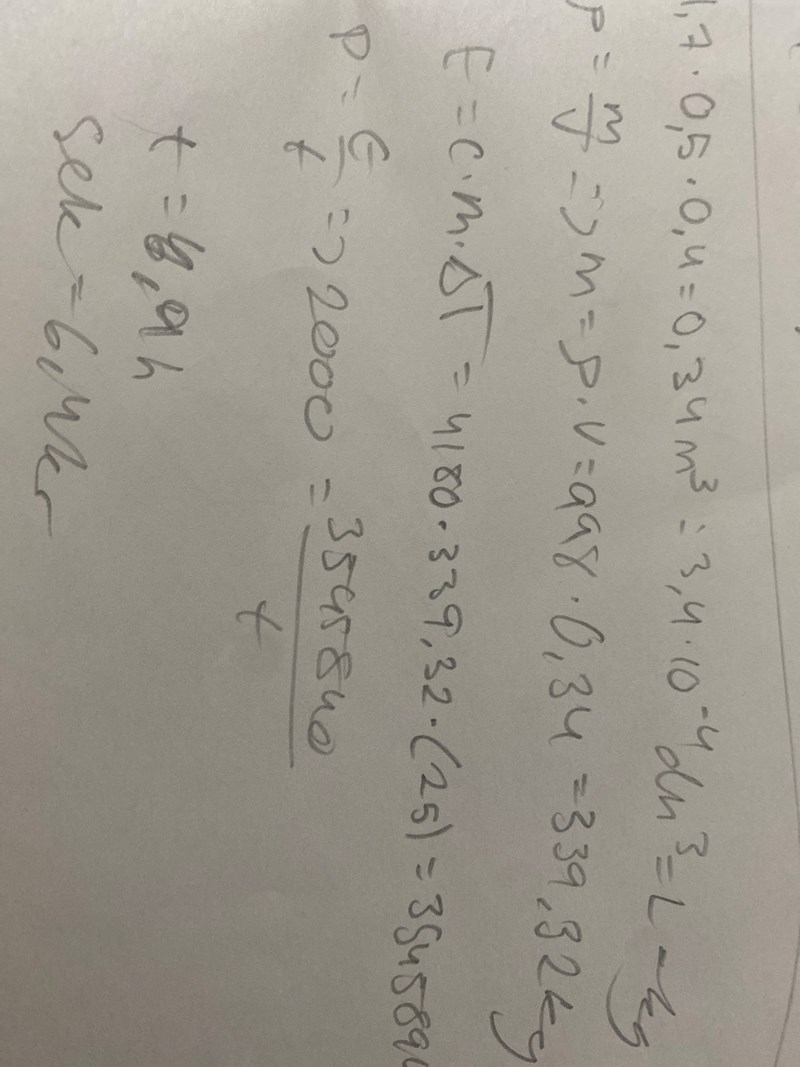 1,7 · 0,5 · 0,4 = 0,34 m³ = 3,4 · 10⁻⁴ dm³ = L → kg
ρ = m/V => m = ρ · V = 998 · 0,34 = 339,32 kg
E = c · m · ΔT = 4180 · 339,32 · (25) = 354589
P = E/t => 2000 = 3545840/t
t = 4,9 h
Sek = 6,4 kr